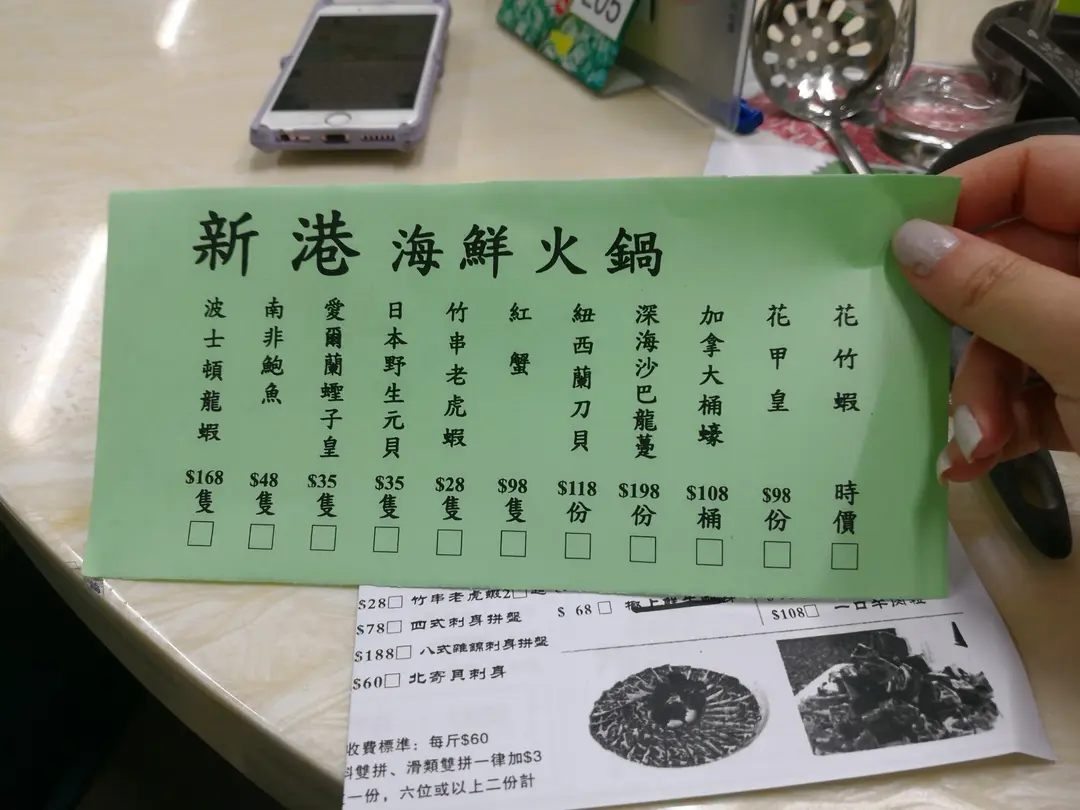 205
新港海鮮火鍋
花竹蝦 時價 □
花甲皇 $98份 □
加拿大桶蠔 $108桶 □
深海沙巴龍躉 $198份 □
紐西蘭刀貝 $118份 □
紅蟹 $98隻 □
竹串老虎蝦 $28隻 □
日本野生元貝 $35隻 □
愛爾蘭蟶子皇 $35隻 □
南非鮑魚 $48隻 □
波士頓龍蝦 $168隻 □
$28□ 竹串老虎蝦
$78□ 四式刺身拼盤
$188□ 八式雜錦刺身拼盤
$60□ 北寄貝刺身
$ 68 □
$108□
收費標準：每斤$60
雙拼、滑類雙拼一律加$3
一份，六位或以上二份計